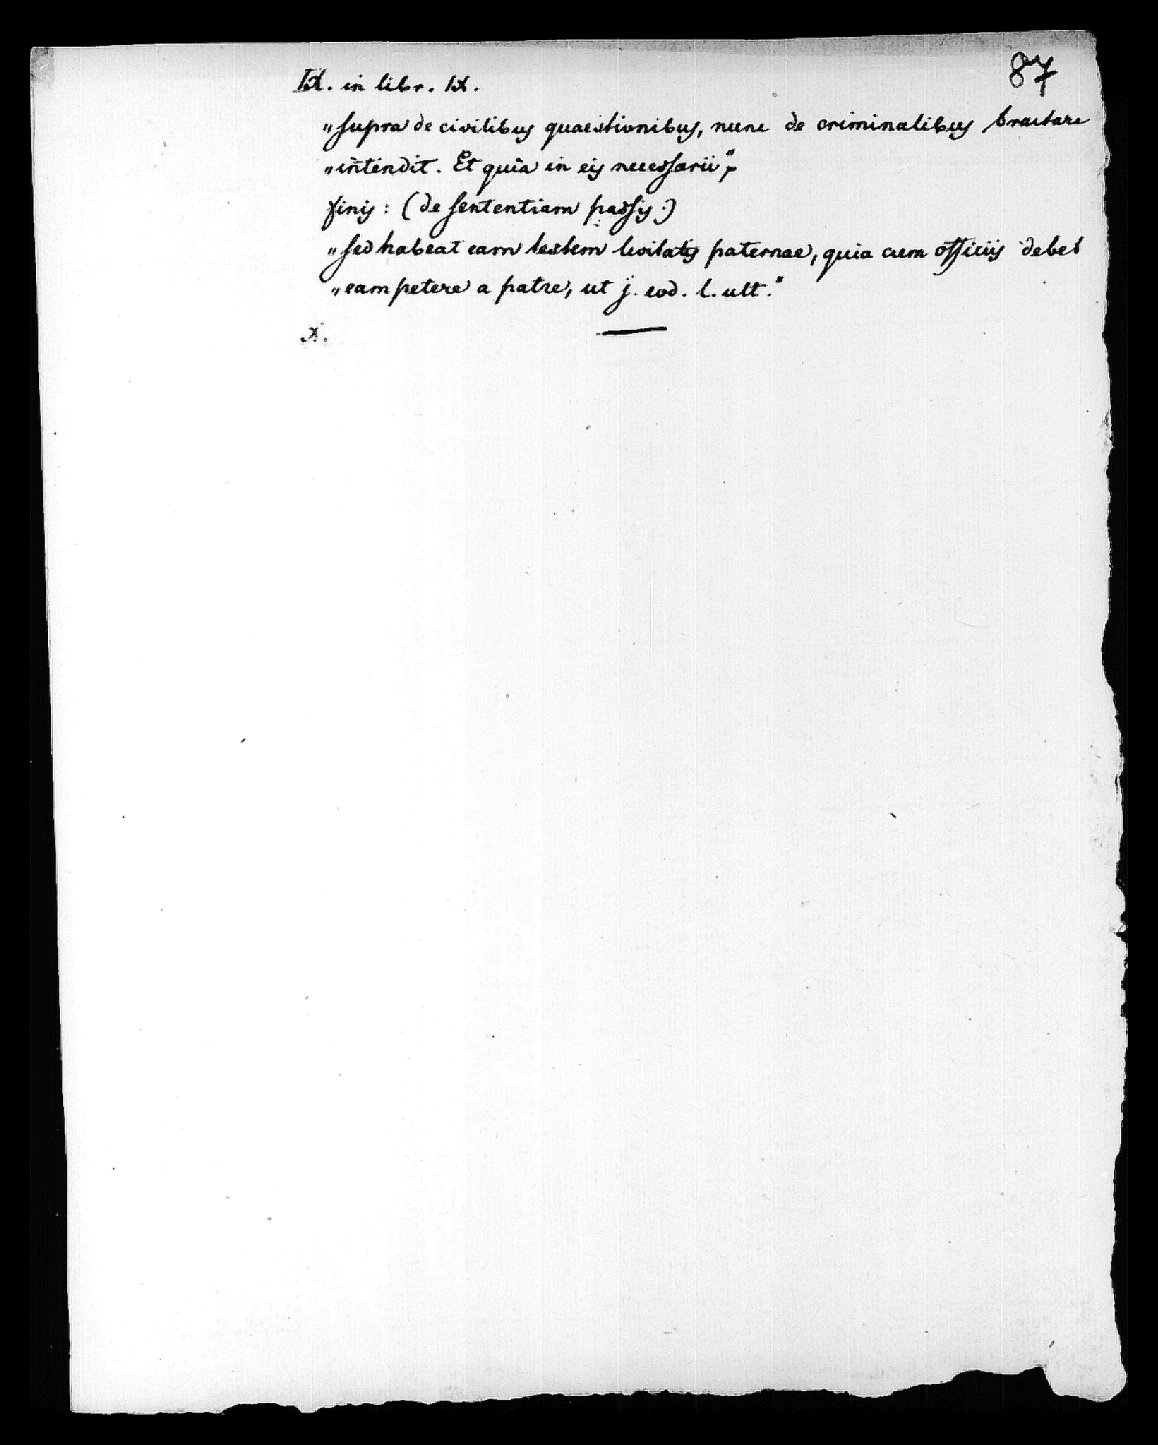 87
IX. in libr. IX.
„supra de civilibus quaestionibus, nunc de criminalibus tractare
„intendit. Et quia in eis necessarii“,
finis: (de sententiam passis:)
„sed habeat eam testem levitatis paternae, quia cum officiis debet
„eam petere a patre, ut j. eod. l. ult.“
X.